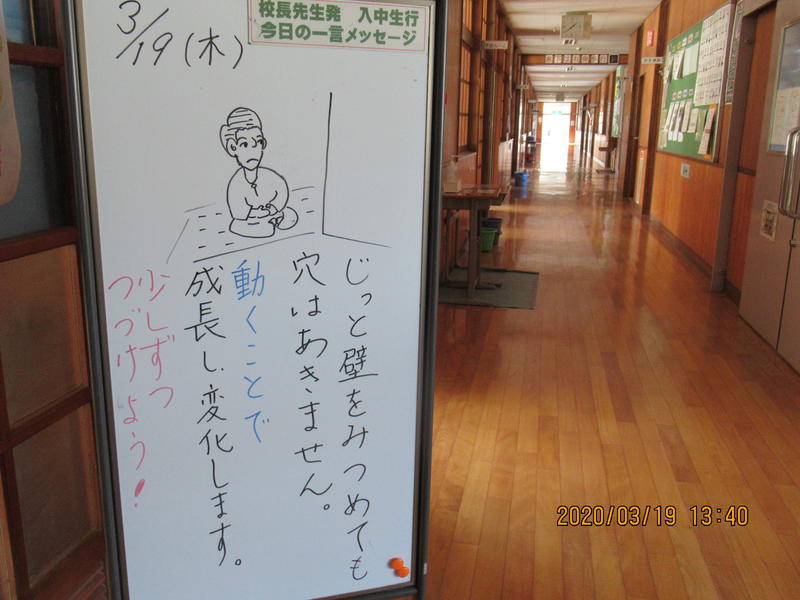 校長先生発 入中生行
今日の一言メッセージ
3/19(木)
じっと壁をみつめても
穴はあきません。
動くことで
成長し、変化します。
少しずつ
つづけよう!
2020/03/19 13:40